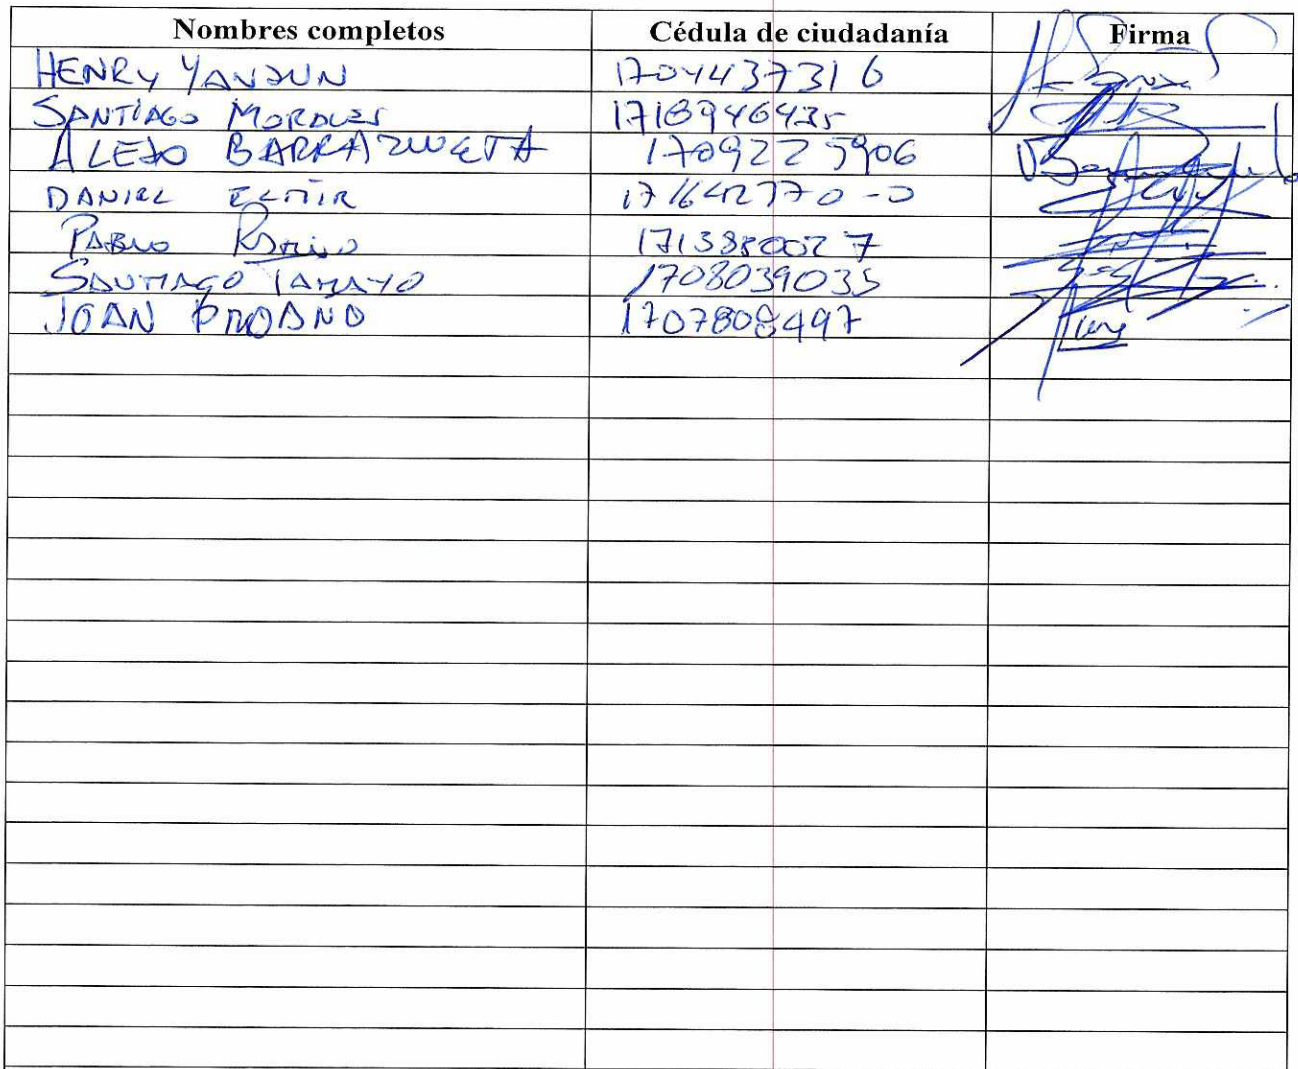 Nombres completos Cédula de ciudadanía Firma
HENRY YANDUN 1704437316
SANTIAGO MORALES 1718946435
ALEJO BARRAZUETA 1709225906
DANIEL 171642770-0
PABLO 1713880027
SANTIAGO TAMAYO 1708039035
JOAN PROANO 1707808497